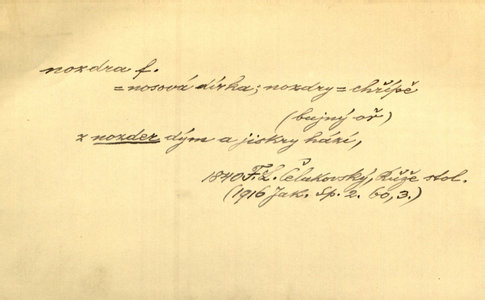 nozdra f.
= nosová dírka; nozdry = chřípě
(bujný oř)
z nozder dým a jiskry hází,
1840 F. L. Čelakovský, Růže stol.
(1916 Jak. Sp. 2. 60, 3.)